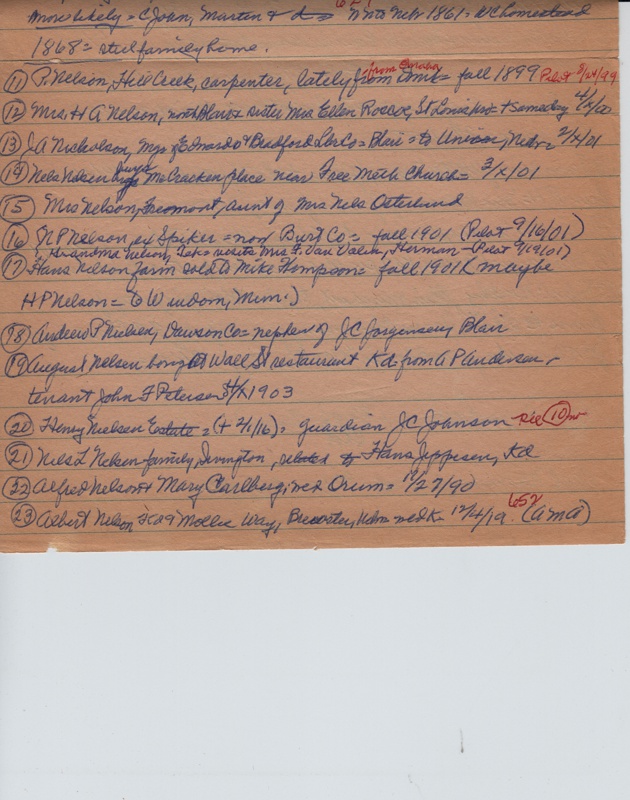 621
More likely = C John, Martin & to Nebr 1861 = WC homestead
1868 = still family home.
from Omaha
(11) P. Nelson, Hill Creek, carpenter, lately from Omaha = fall 1899 Pilot 8/24/99
(12) Mrs. H A Nelson, north Blair & sister Mrs Ellen Roscoe, St Louis, & someday 4/x/00
(13) J A Nickolson, Mgr Edwards & Bradford Lbr Co = Blair = to Union, Nebr = 2/x/01
(14) Nels Nelsen buys McCracken place near Free Meth Church = 3/x/01
(15) Mrs Nelson, Fremont, aunt of Mrs Nels Osterlund
(16) N P Nelson, ex Spiker = now Burt Co = fall 1901 (Pilot 9/16/01)
Grandma Nelson, Tek = visits Mrs F. Van Valin, Herman - Pilot 9/19/01)
(17) Hans Nelson farm sold to Mike Thompson = fall 1901 (maybe
H P Nelson = to Windom, Minn.)
(18) Andrew P Nielsen, Dawson Co = nephew of J C Jorgensen, Blair
(19) August Nelsen bought Wall St restaurant Kd from A P Andersen,
tenant John F Petersen 4/x/1903
(20) Henry Nielsen Estate = (+ 2/1/16) = guardian J C Johnson see (10)
(21) Nels L Nelsen family, Irvington, related to Hans Jeppesen, Kd
(22) Alfred Nelson & Mary Carlberg, wed Orum = 11/27/90
652
(23) Albert Nelson & Mollie Way, Brewster, wed K = 12/4/19. (AMA)